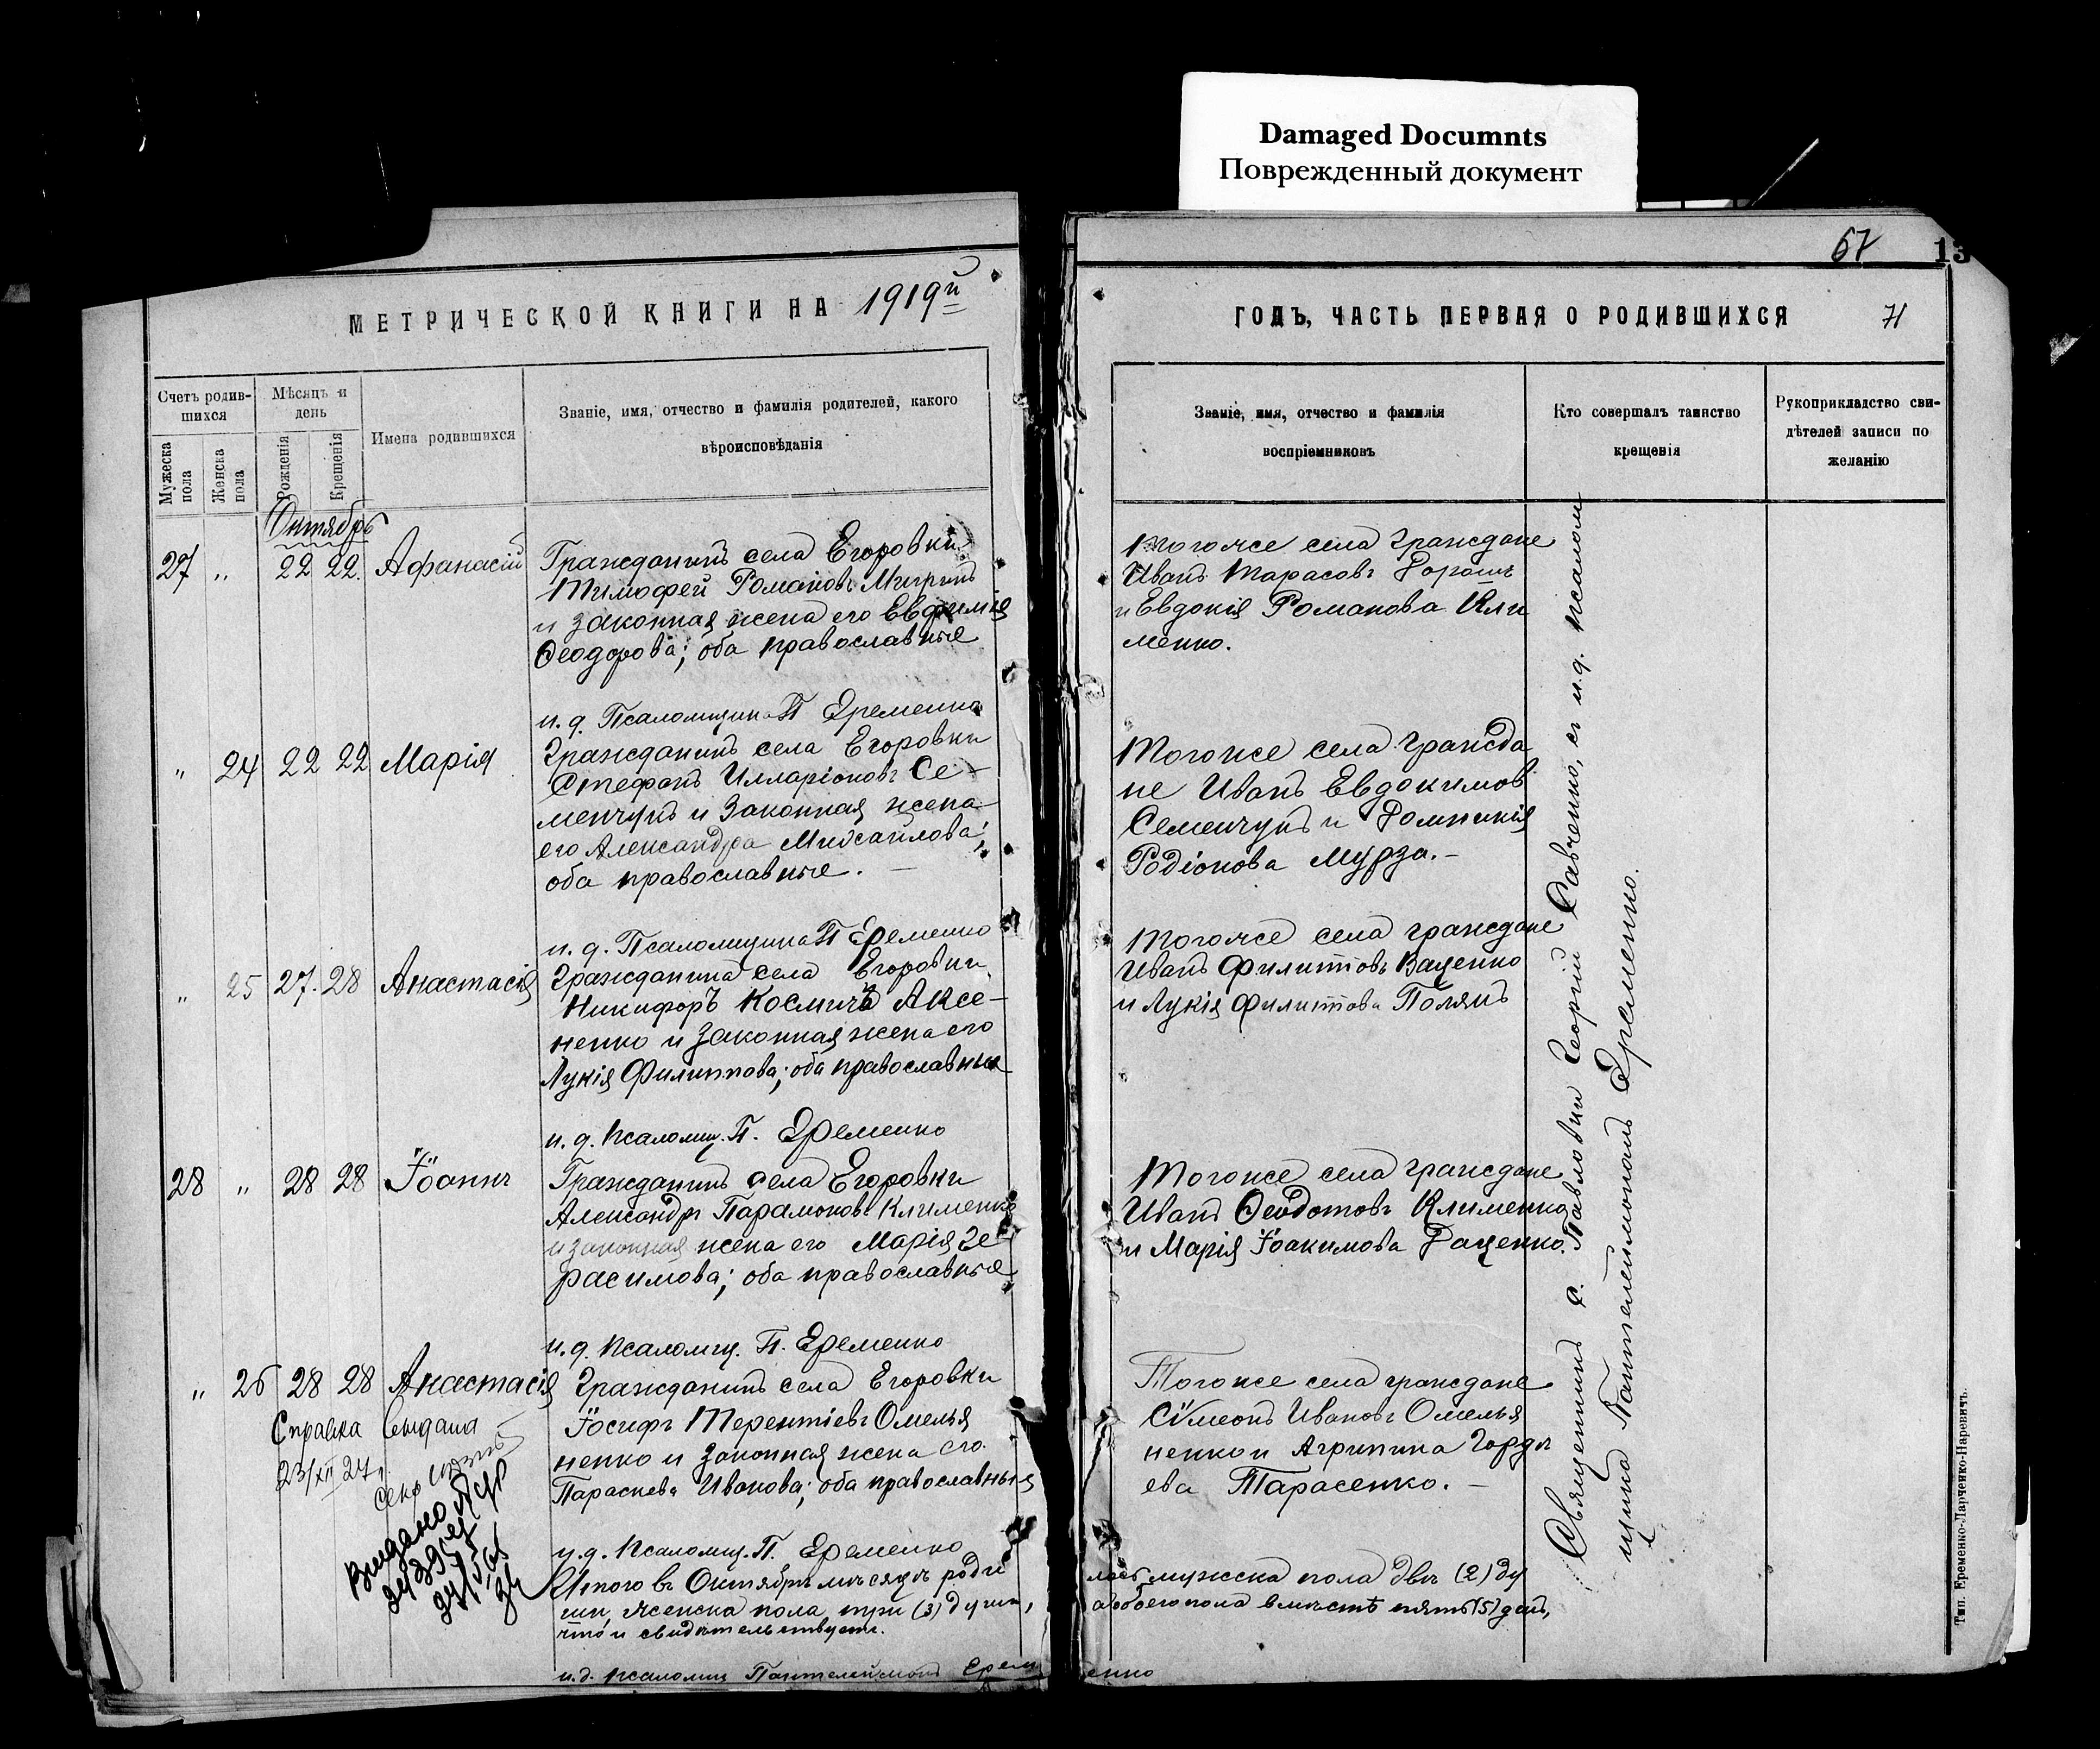 Damaged Documnts
Поврежденный документ
67
13
МЕТРИЧЕСКОЙ КНИГИ НА 1919й
ГОДЪ, ЧАСТЬ ПЕРВАЯ О РОДИВШИХСЯ
71
Счетъ родив-
шихся
Мужеска
пола
Женска
пола
Мѣсяцъ и
день
Рожденія
Крещенія
Имена родившихся
Званіе, имя, отчество и фамилія родителей, какого
вѣроисповѣданія
Званіе, имя, отчество и фамилія
воспріемниковъ
Кто совершалъ таинство
крещенія
Рукоприкладство сви-
дѣтелей записи по
желанію
Октябрь
27 " 22 22. Афанасій
Гражданинъ села Егоровки
Тимофей Романовъ
и законная жена его Евфимія
Ѳеодорова; оба православные
Тогоже села граждане
Иванъ Тарасовъ
и Евдокія Романова Кли
менко.
и. д. Псаломщика П Еременко
" 24 22 22 Марія
Гражданинъ села Егоровки
Стефанъ Илларіоновъ Се-
менчукъ и законная жена
его Александра Михайлова;
оба православные. —
Тогоже села гражда
не Иванъ Евдокимов
Семенчукъ и Домникія
Родіонова Мурза. —
и. д. Псаломщика П Еременко
" 25 27. 28 Анастасія
Гражданинъ села Егоровки
Никифоръ Космичъ Аксе-
ненко и законная жена его
Лукія Филиппова; оба православные
Тогоже села граждане
Иванъ Филипповъ Ваценко
и Лукія Филиппова Полякъ
и. д. псаломщ. П. Еременко
28 " 28 28 Іоаннъ
Гражданинъ села Егоровки
Александръ Парамоновъ Клименко
и законная жена его Марія Ге-
расимова; оба православные
Тогоже села граждане
Иванъ Ѳеодотовъ Клименко
и Марія Іоакимова Даценко.
и. д. псаломщ. П. Еременко
" 26 28 28 Анастасія
Гражданинъ села Егоровки
Іосифъ Терентіевъ Омелья
ненко и законная жена его
Параскева Иванова; оба православныя
Тогоже села граждане
Сѵмеонъ Ивановъ Омелья
ненко и Агрипина Горде
ева Тарасенко. —
Справка выдана
23/XII 27 г.
Выдано
и. д. псаломщ. П. Еременко
Итого въ Октябрѣ мѣсяцѣ роди
лось мужска пола двѣ (2) ду
ши, женска пола три (3) души,
а обоего пола вмѣстѣ пять (5) душъ,
что и свидѣтельствуетъ.
и. д. псаломщ Пантелеимонъ Еременко
Священникъ с. Павловки Георгій Савченко, съ и. д. псалом
щика Пантелеимономъ Еременко.
Тип. Еременко-Ларченко-Наревичъ.